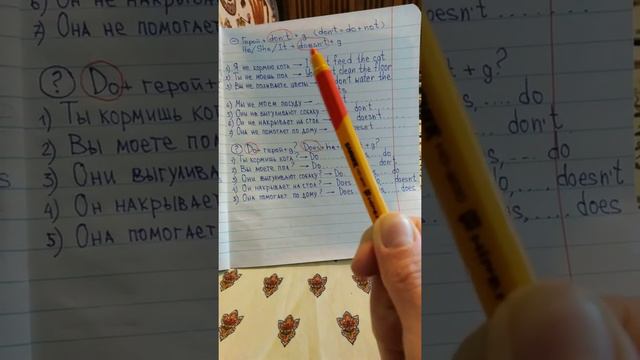 Герой + don't + g (don't = do + not)
He/She/It + doesn't + g
1) Я не кормлю кота → I feed the cat
2) Ты не моешь пол → clean the floor
3) Вы не поливаете цветы don't water the
4) Мы не моем посуду →
5) Они не выгуливают собаку → don't
6) Он не накрывает на стол →
7) Она не помогает по дому → doesn't
? Do + герой + g? Does + he + g?
1) Ты кормишь кота? → Do ... do
2) Вы моете пол? → Do ... don't
3) Они выгуливают собаку? → Do ... do
4) Он накрывает на стол? → Does ... doesn't
5) Она помогает по дому? → Does ... does
7) Она не помогает
? Do + герой +
1) Ты кормишь
2) Вы моете пол
3) Они выгули
4) Он накрывает
5) Она помогает
+ g?
do
don't
do
doesn't
does